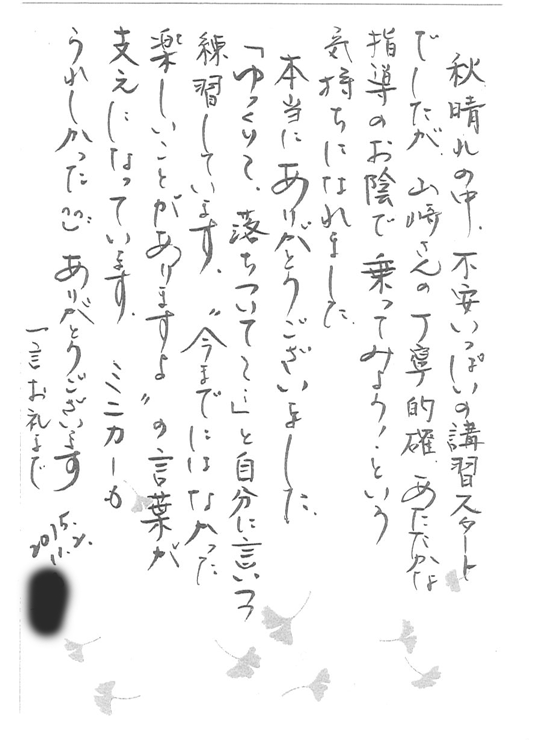 秋晴れの中、不安いっぱいの講習スタート
でしたが、山崎さんの丁寧的確、あたたかな
指導のお陰で乗ってみよう!という
気持ちになれました。
本当にありがとうございました。
「ゆっくりで、落ちついて〜…」と自分に言いつつ
練習しています。"今までにはなかった
楽しいことがありますよ"の言葉が
支えになっています。ミニカーも
うれしかったです。ありがとうございます
一言お礼まで
2015.
11.2.